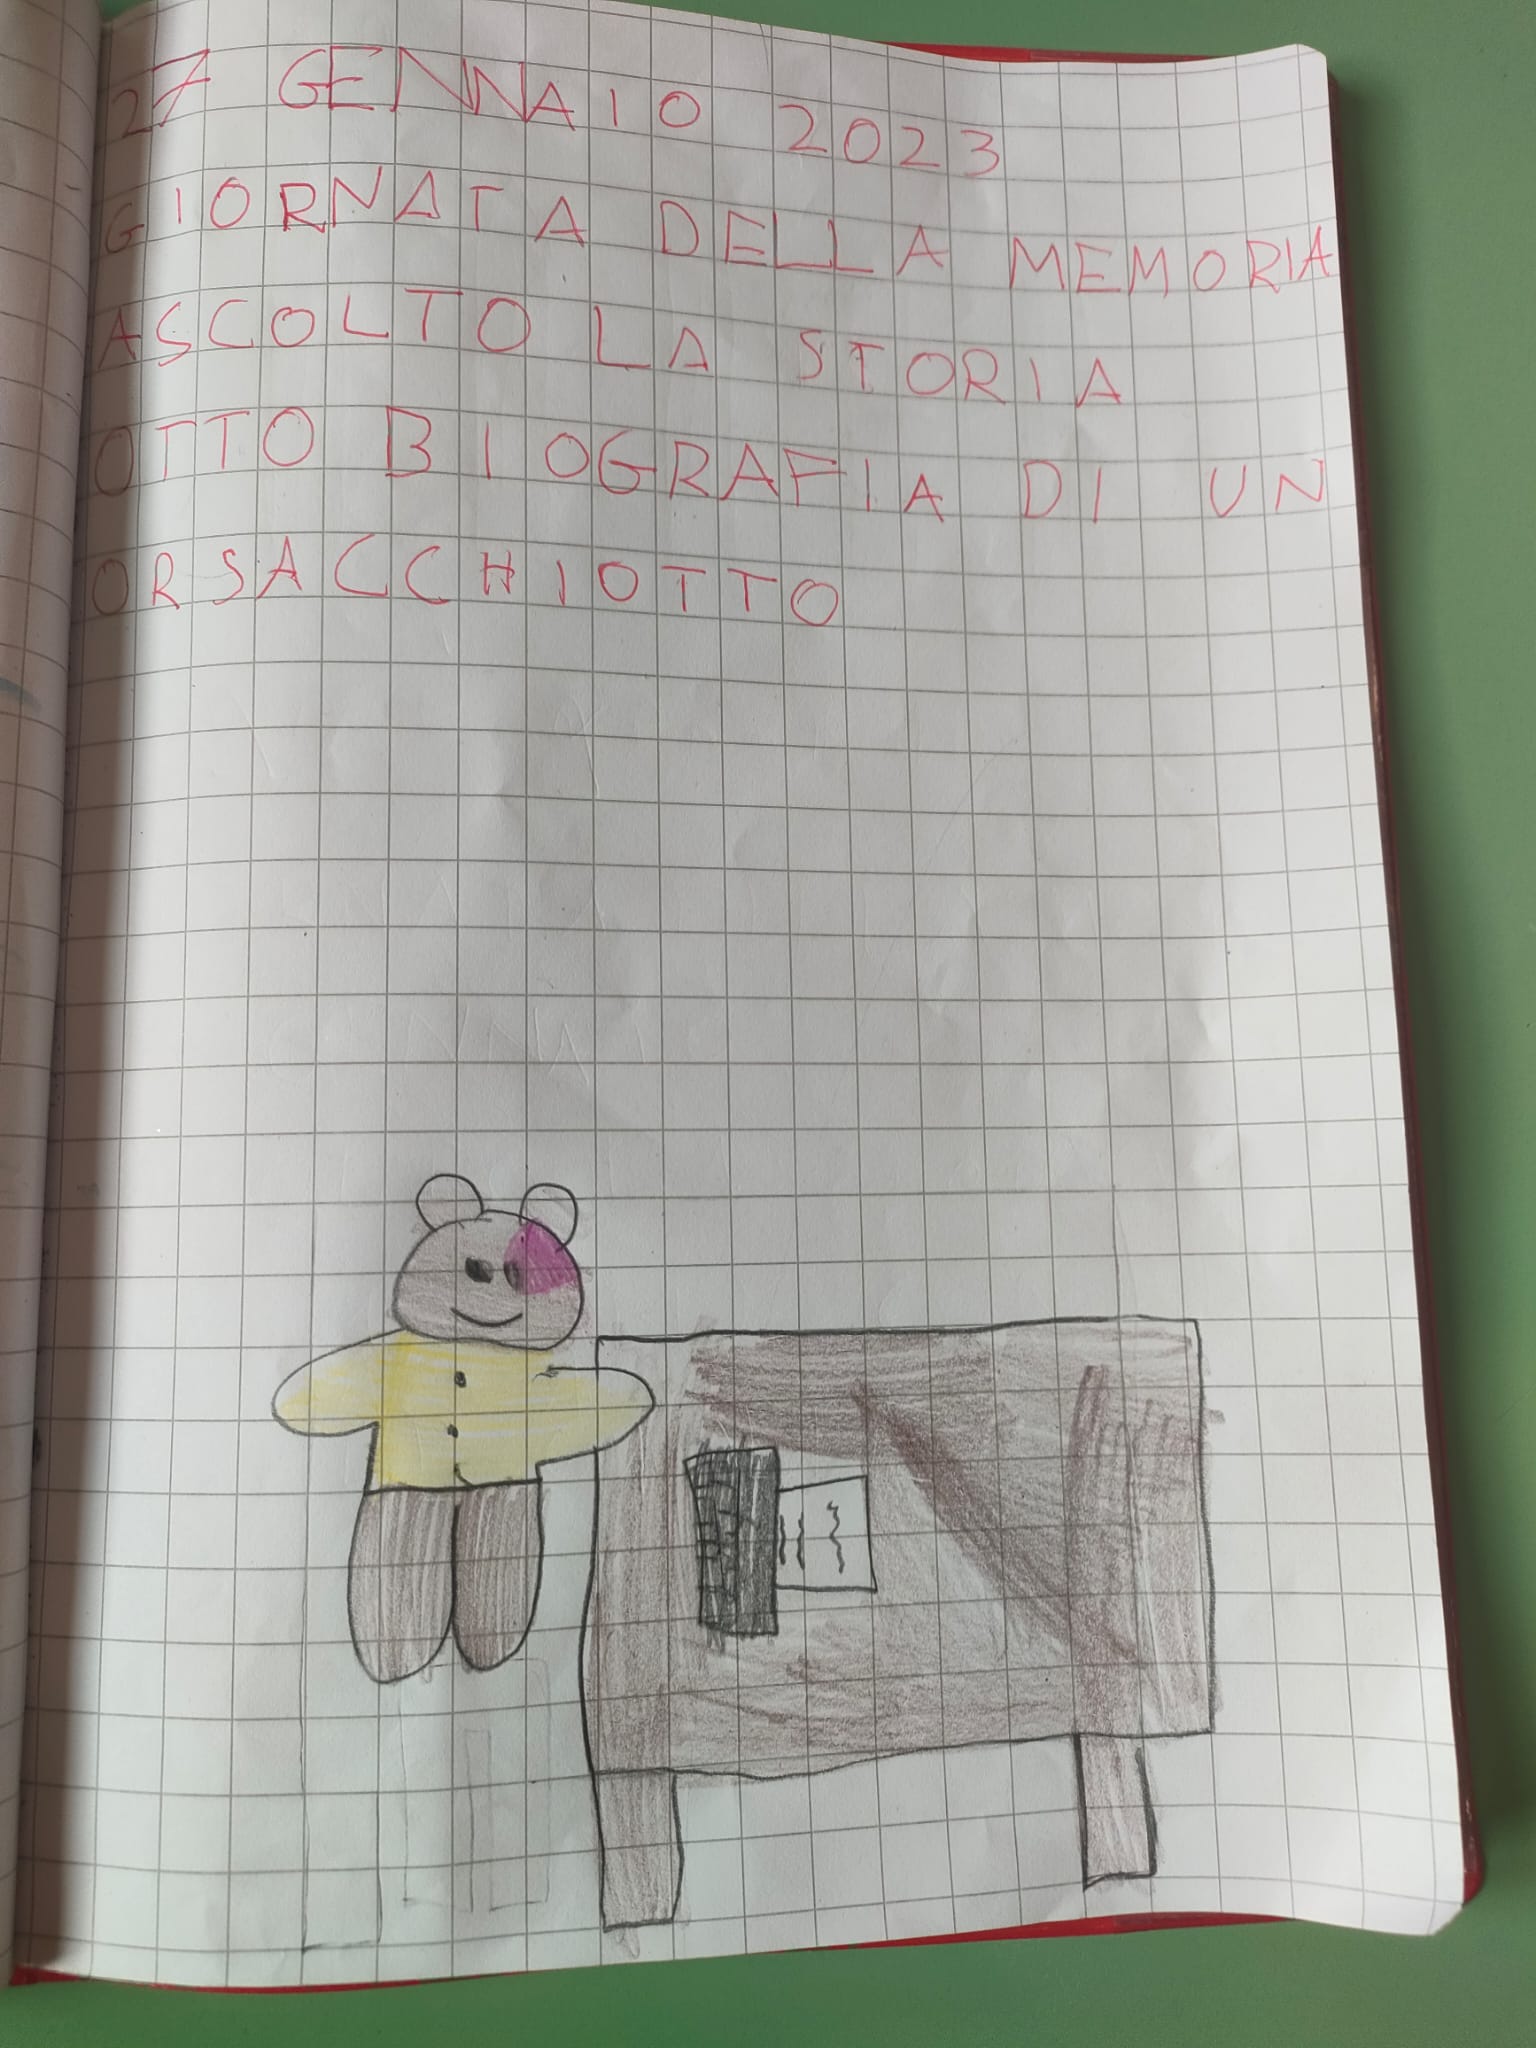 27 GENNAIO 2023
GIORNATA DELLA MEMORIA
ASCOLTO LA STORIA
OTTO BIOGRAFIA DI UN
ORSACCHIOTTO